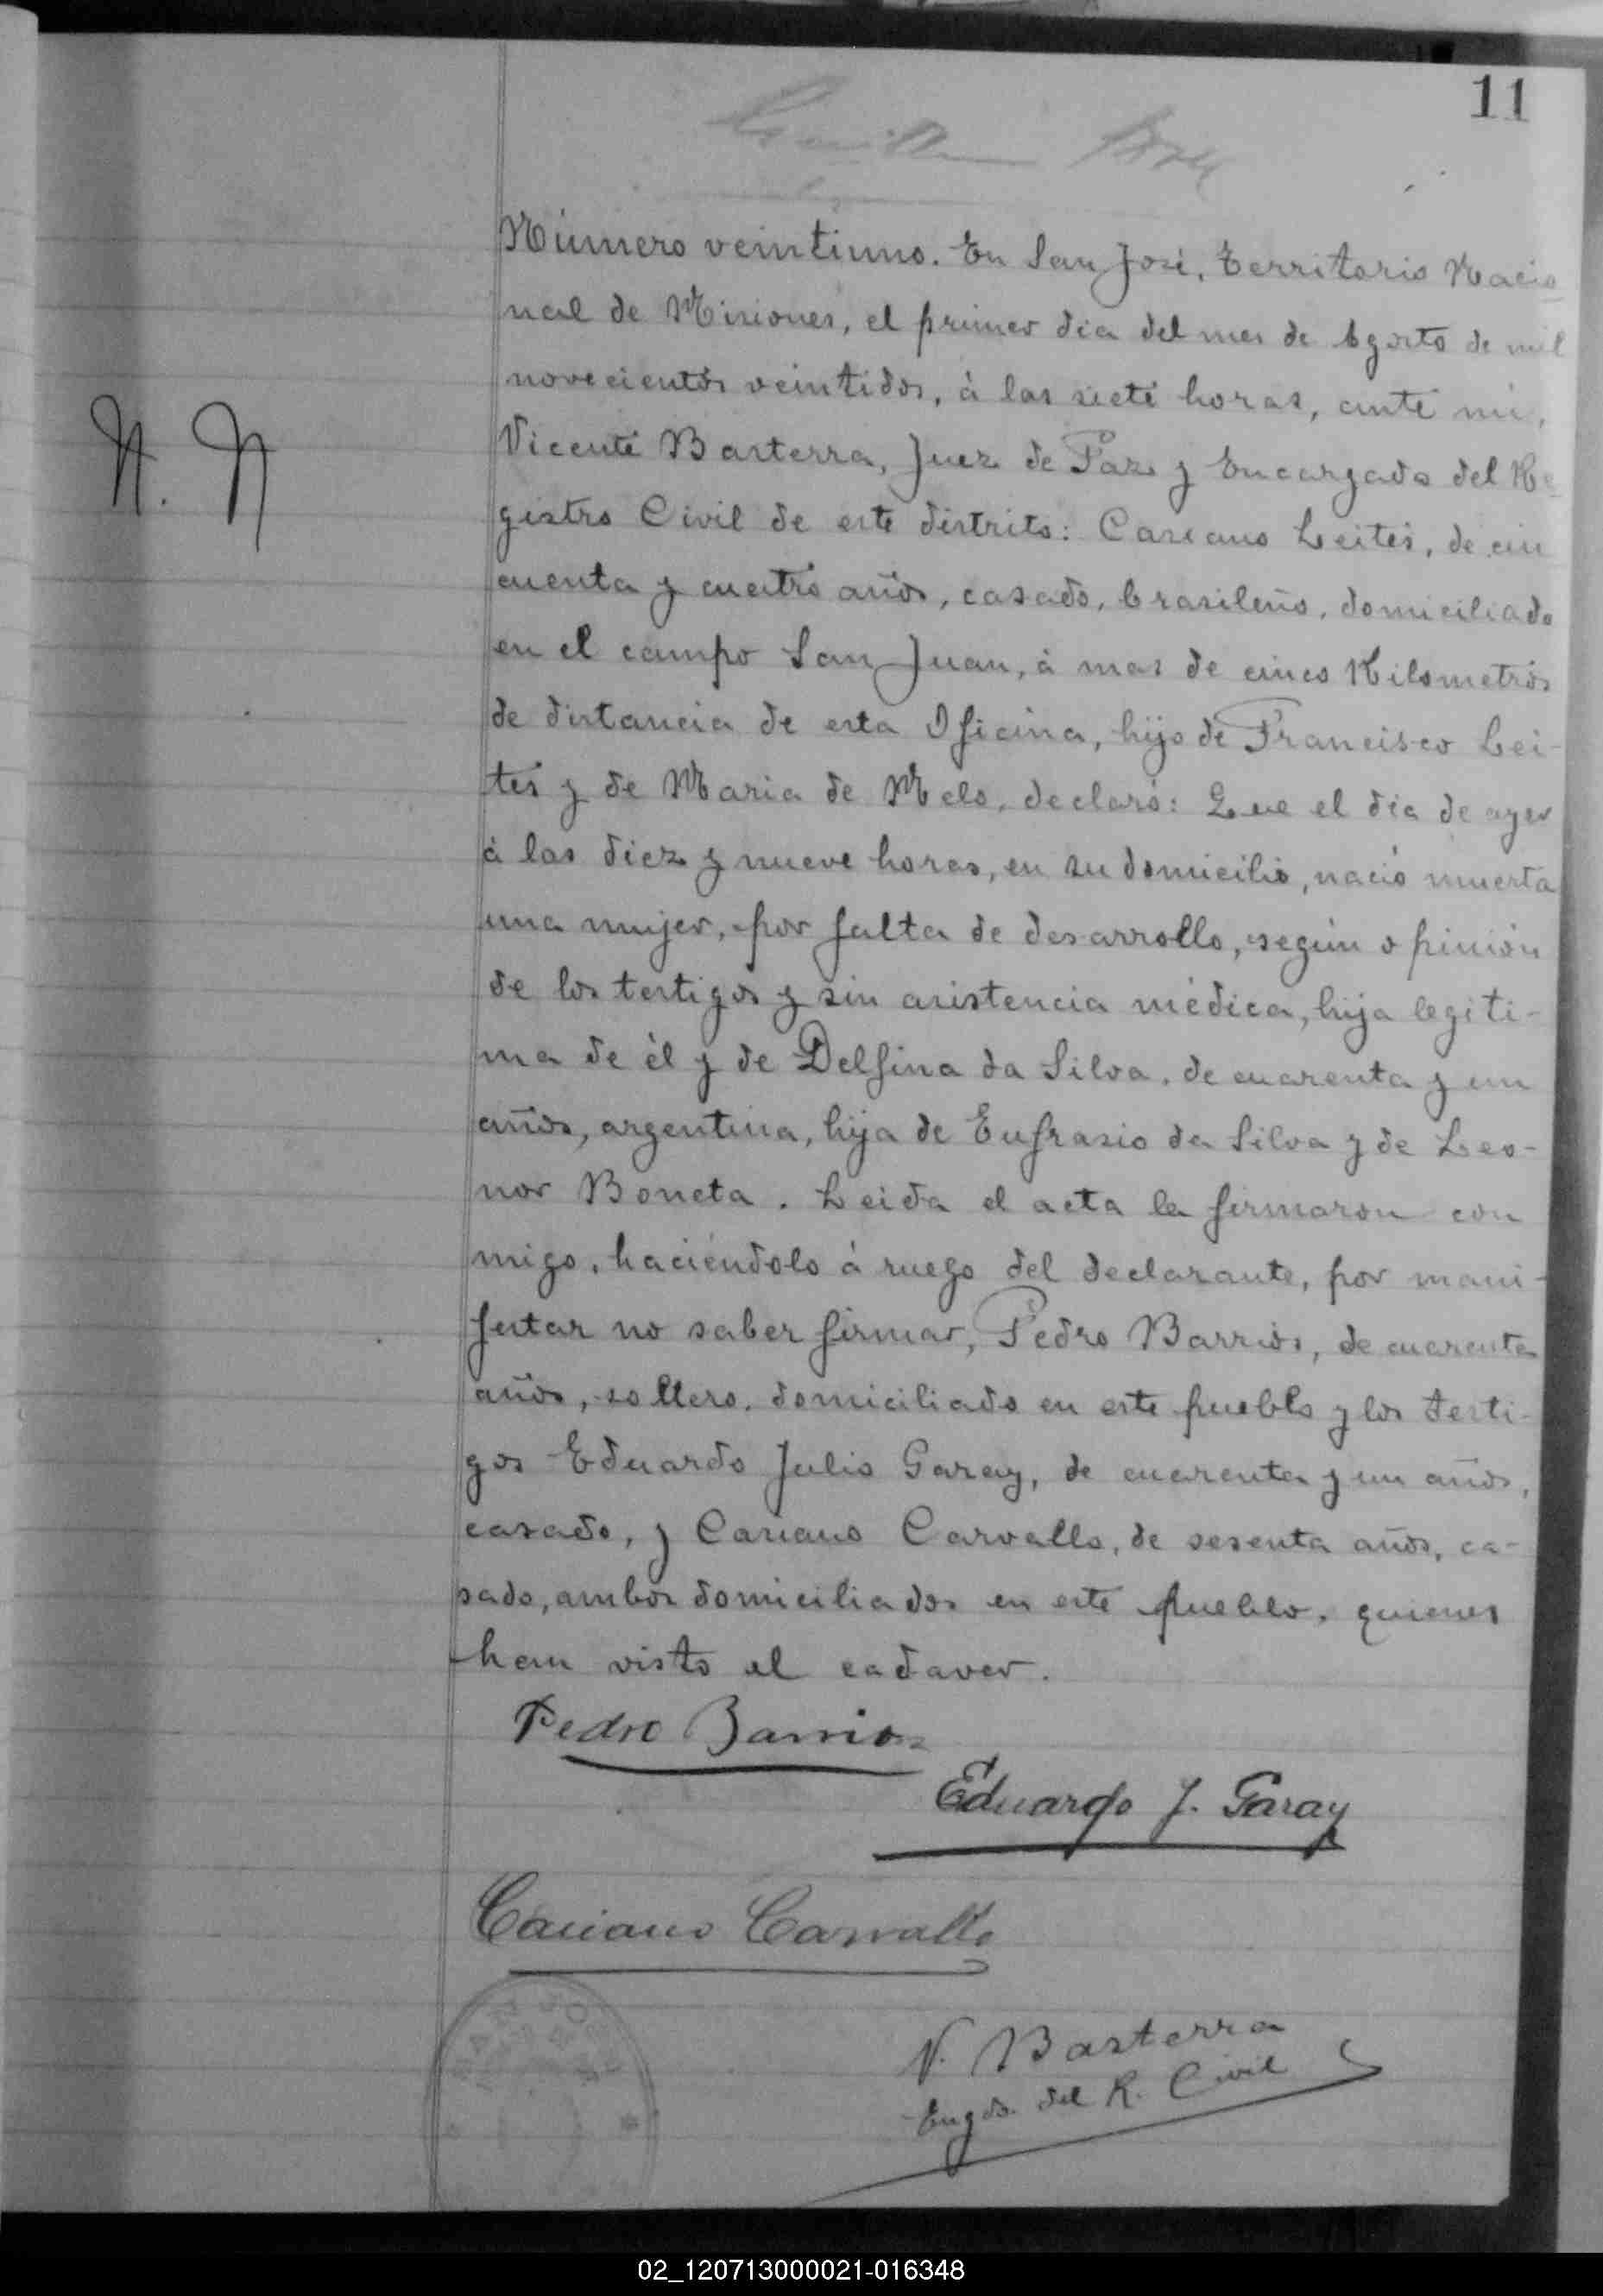 11
Número veintiuno. En San José, Territorio Nacio
nal de Misiones, el primer dia del mes de Agosto de mil
novecientos veintidos, à las siete horas, ante mi,
Vicente Basterra, Juez de Paz y Encargado del Re
gistro Civil de este distrito: Casiano Leites, de cin
cuenta y cuatro años, casado, brasileño, domiciliado
en el campo San Juan, à mas de cinco Kilometros
de distancia de esta Oficina, hijo de Francisco Lei-
tes y de Maria de Melo, declaró: Que el dia de ayer
à las diez y nueve horas, en su domicilio, nació muerta
una mujer, por falta de desarrollo, según opinión
de los testigos y sin asistencia médica, hija legiti-
ma de él y de Delfina da Silva, de cuarenta y un
años, argentina, hija de Eufrasio da Silva y de Leo-
nor Boneta. Leida el acta la firmaron con
migo, haciéndolo à ruego del declarante, por mani-
festar no saber firmar, Pedro Barrios, de cuarenta
años, soltero, domiciliado en este pueblo y los testi-
gos Eduardo Julio Garay, de cuarenta y un años,
casado, y Casiano Carvallo, de sesenta años, ca-
sado, ambos domiciliados en este pueblo, quienes
han visto el cadaver.
N. N
Pedro Barrios
Eduardo J. Garay
Casiano Carvallo
V. Basterra
Engdo. del R. Civil
02_120713000021-016348